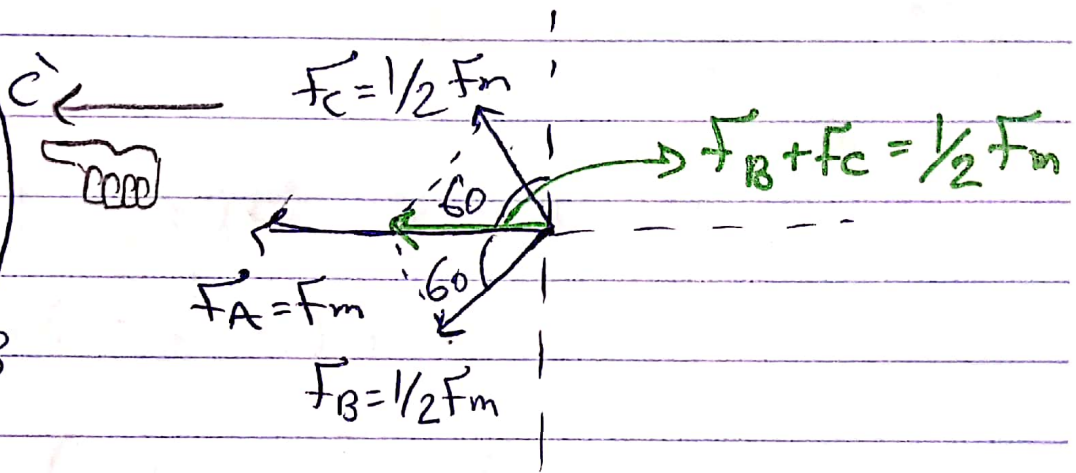 C`
F_C = 1/2 Fm
F_B + F_C = 1/2 Fm
60
60
F_A = Fm
F_B = 1/2 Fm